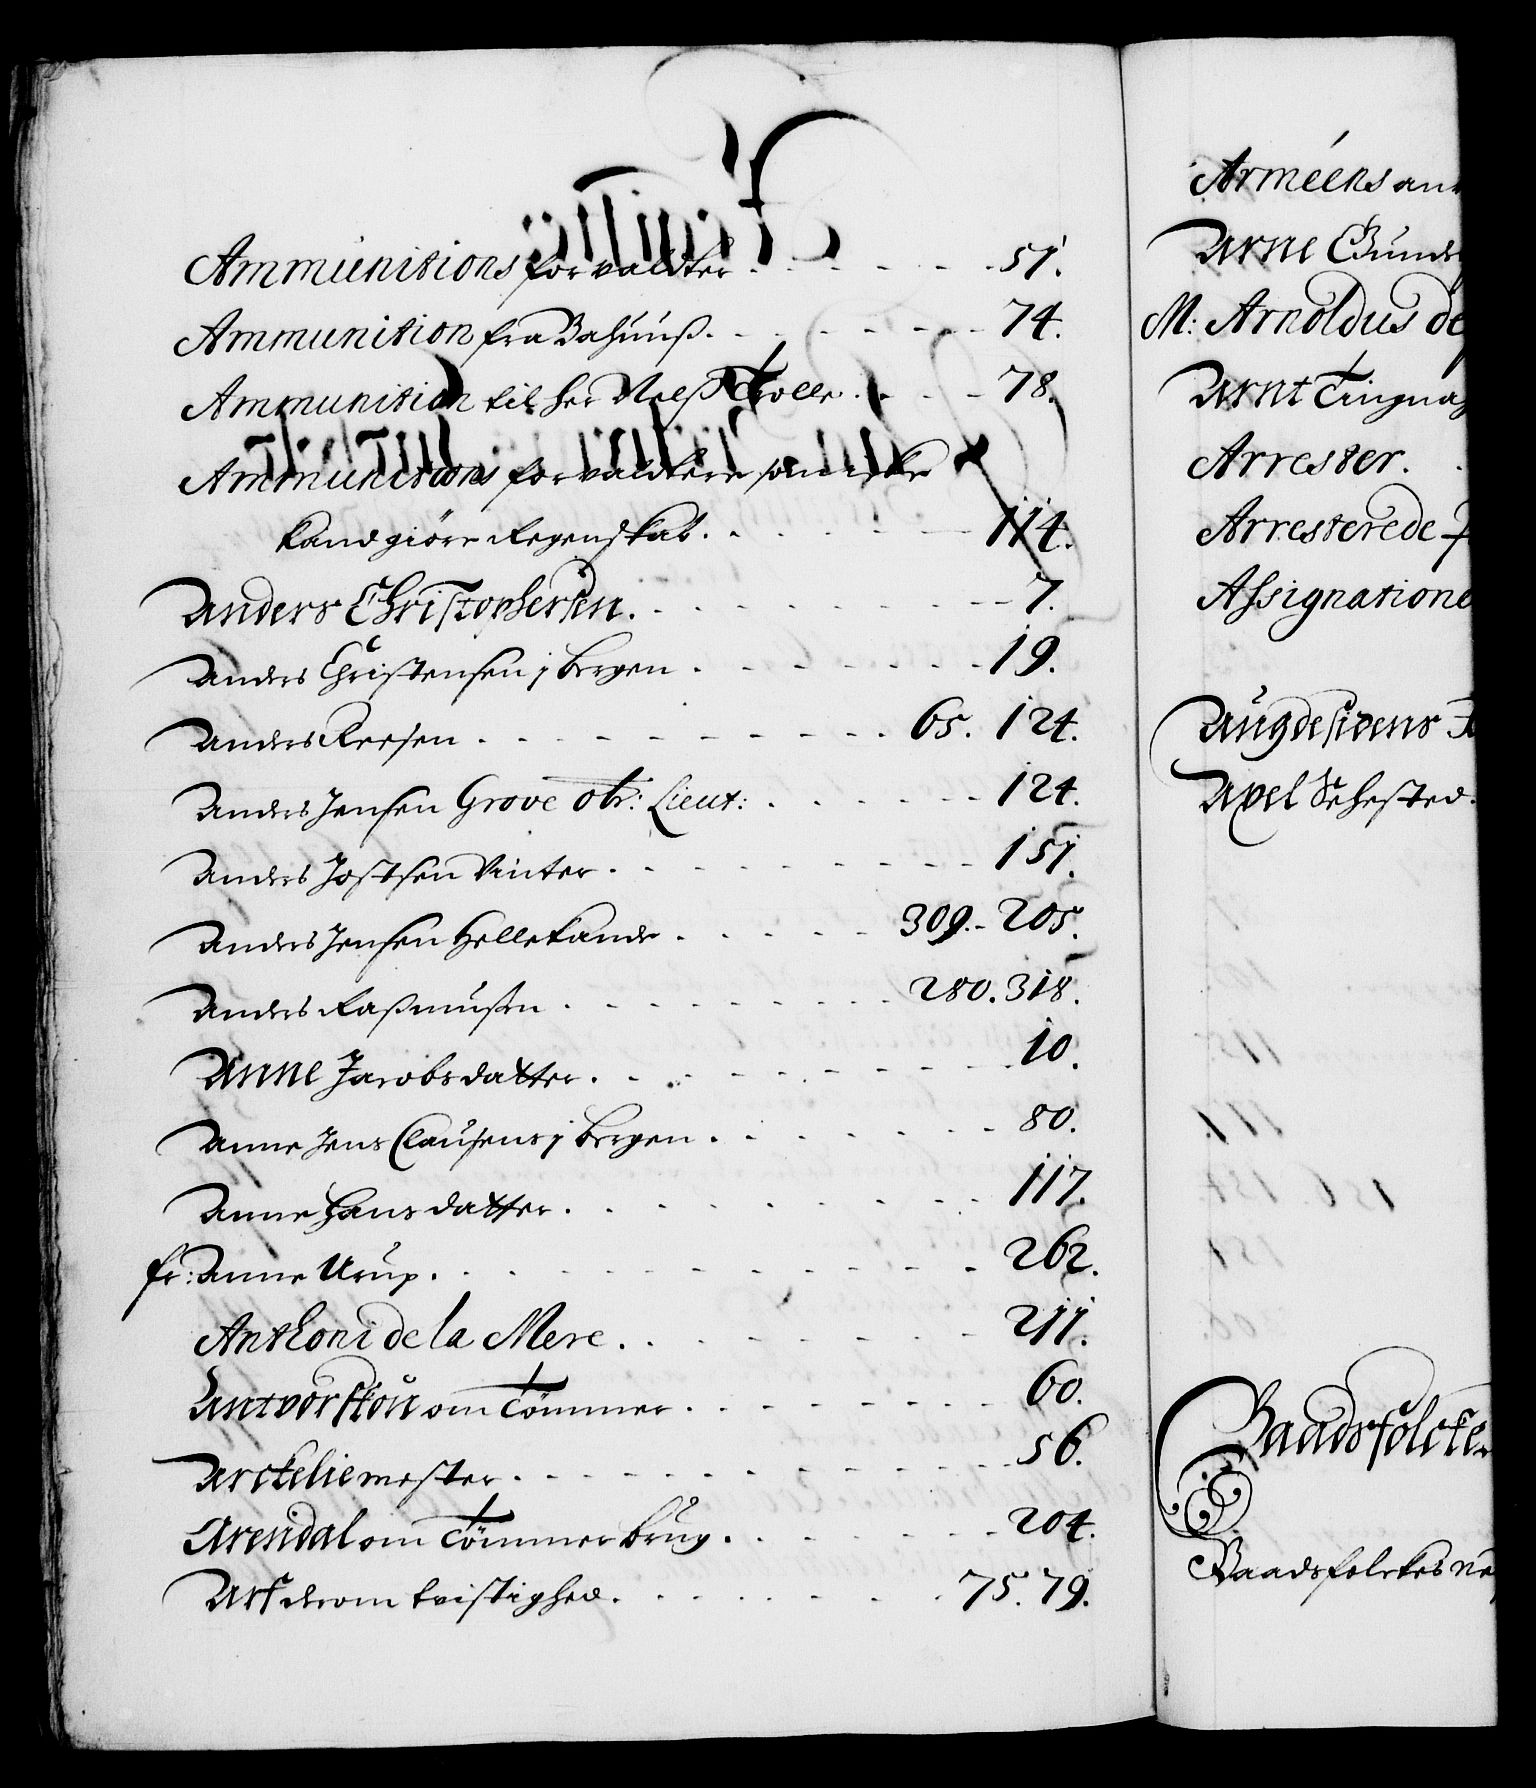 Ammunitions forvaldter . . . . . . . 51.
Ammunition fra Bahuuß. . . . . . . . 74.
Ammunition til her Nelß Trolle . . . . 78.
Ammunitions forvaldtere som icke
kand giöre Regenskab. . . . . . . 114.
Anders Christophersen. . . . . . . . . . 7.
Anders Christensen j Bergen . . . . . . . 19.
Anders Reesen . . . . . . . . . . 65. 124.
Anders Jensen Grove obr: Lieut: . . . . . . 124.
Anders Jostsen Vinter . . . . . . . . . 151.
Anders Jensen Hellekande . . . . . 309. 205.
Anders Raßmußen . . . . . . . . 280. 318.
Anne Jacobsdatter . . . . . . . . . . 10.
Anne Jens Clausens j Bergen . . . . . . . 80.
Anne Hansdatter . . . . . . . . . 117.
fr: Anne Urup . . . . . . . . . . . 262.
Anthoni de la Mere . . . . . . . . 211.
Antvorskou om Tömmer . . . . . . . . 60.
Arckeliemester . . . . . . . . . . 56.
Arendal om Tömmer brug . . . . . . . 204.
Arf derom tvistighed . . . . . . . 75. 79.
Arméens
Arne Gunde
M: Arnoldus de
Arnt
Arrester.
Arresterede
Assignatione
Augdesidens
Axel Sehested.
Baadsfolcke
Baadsfolckes